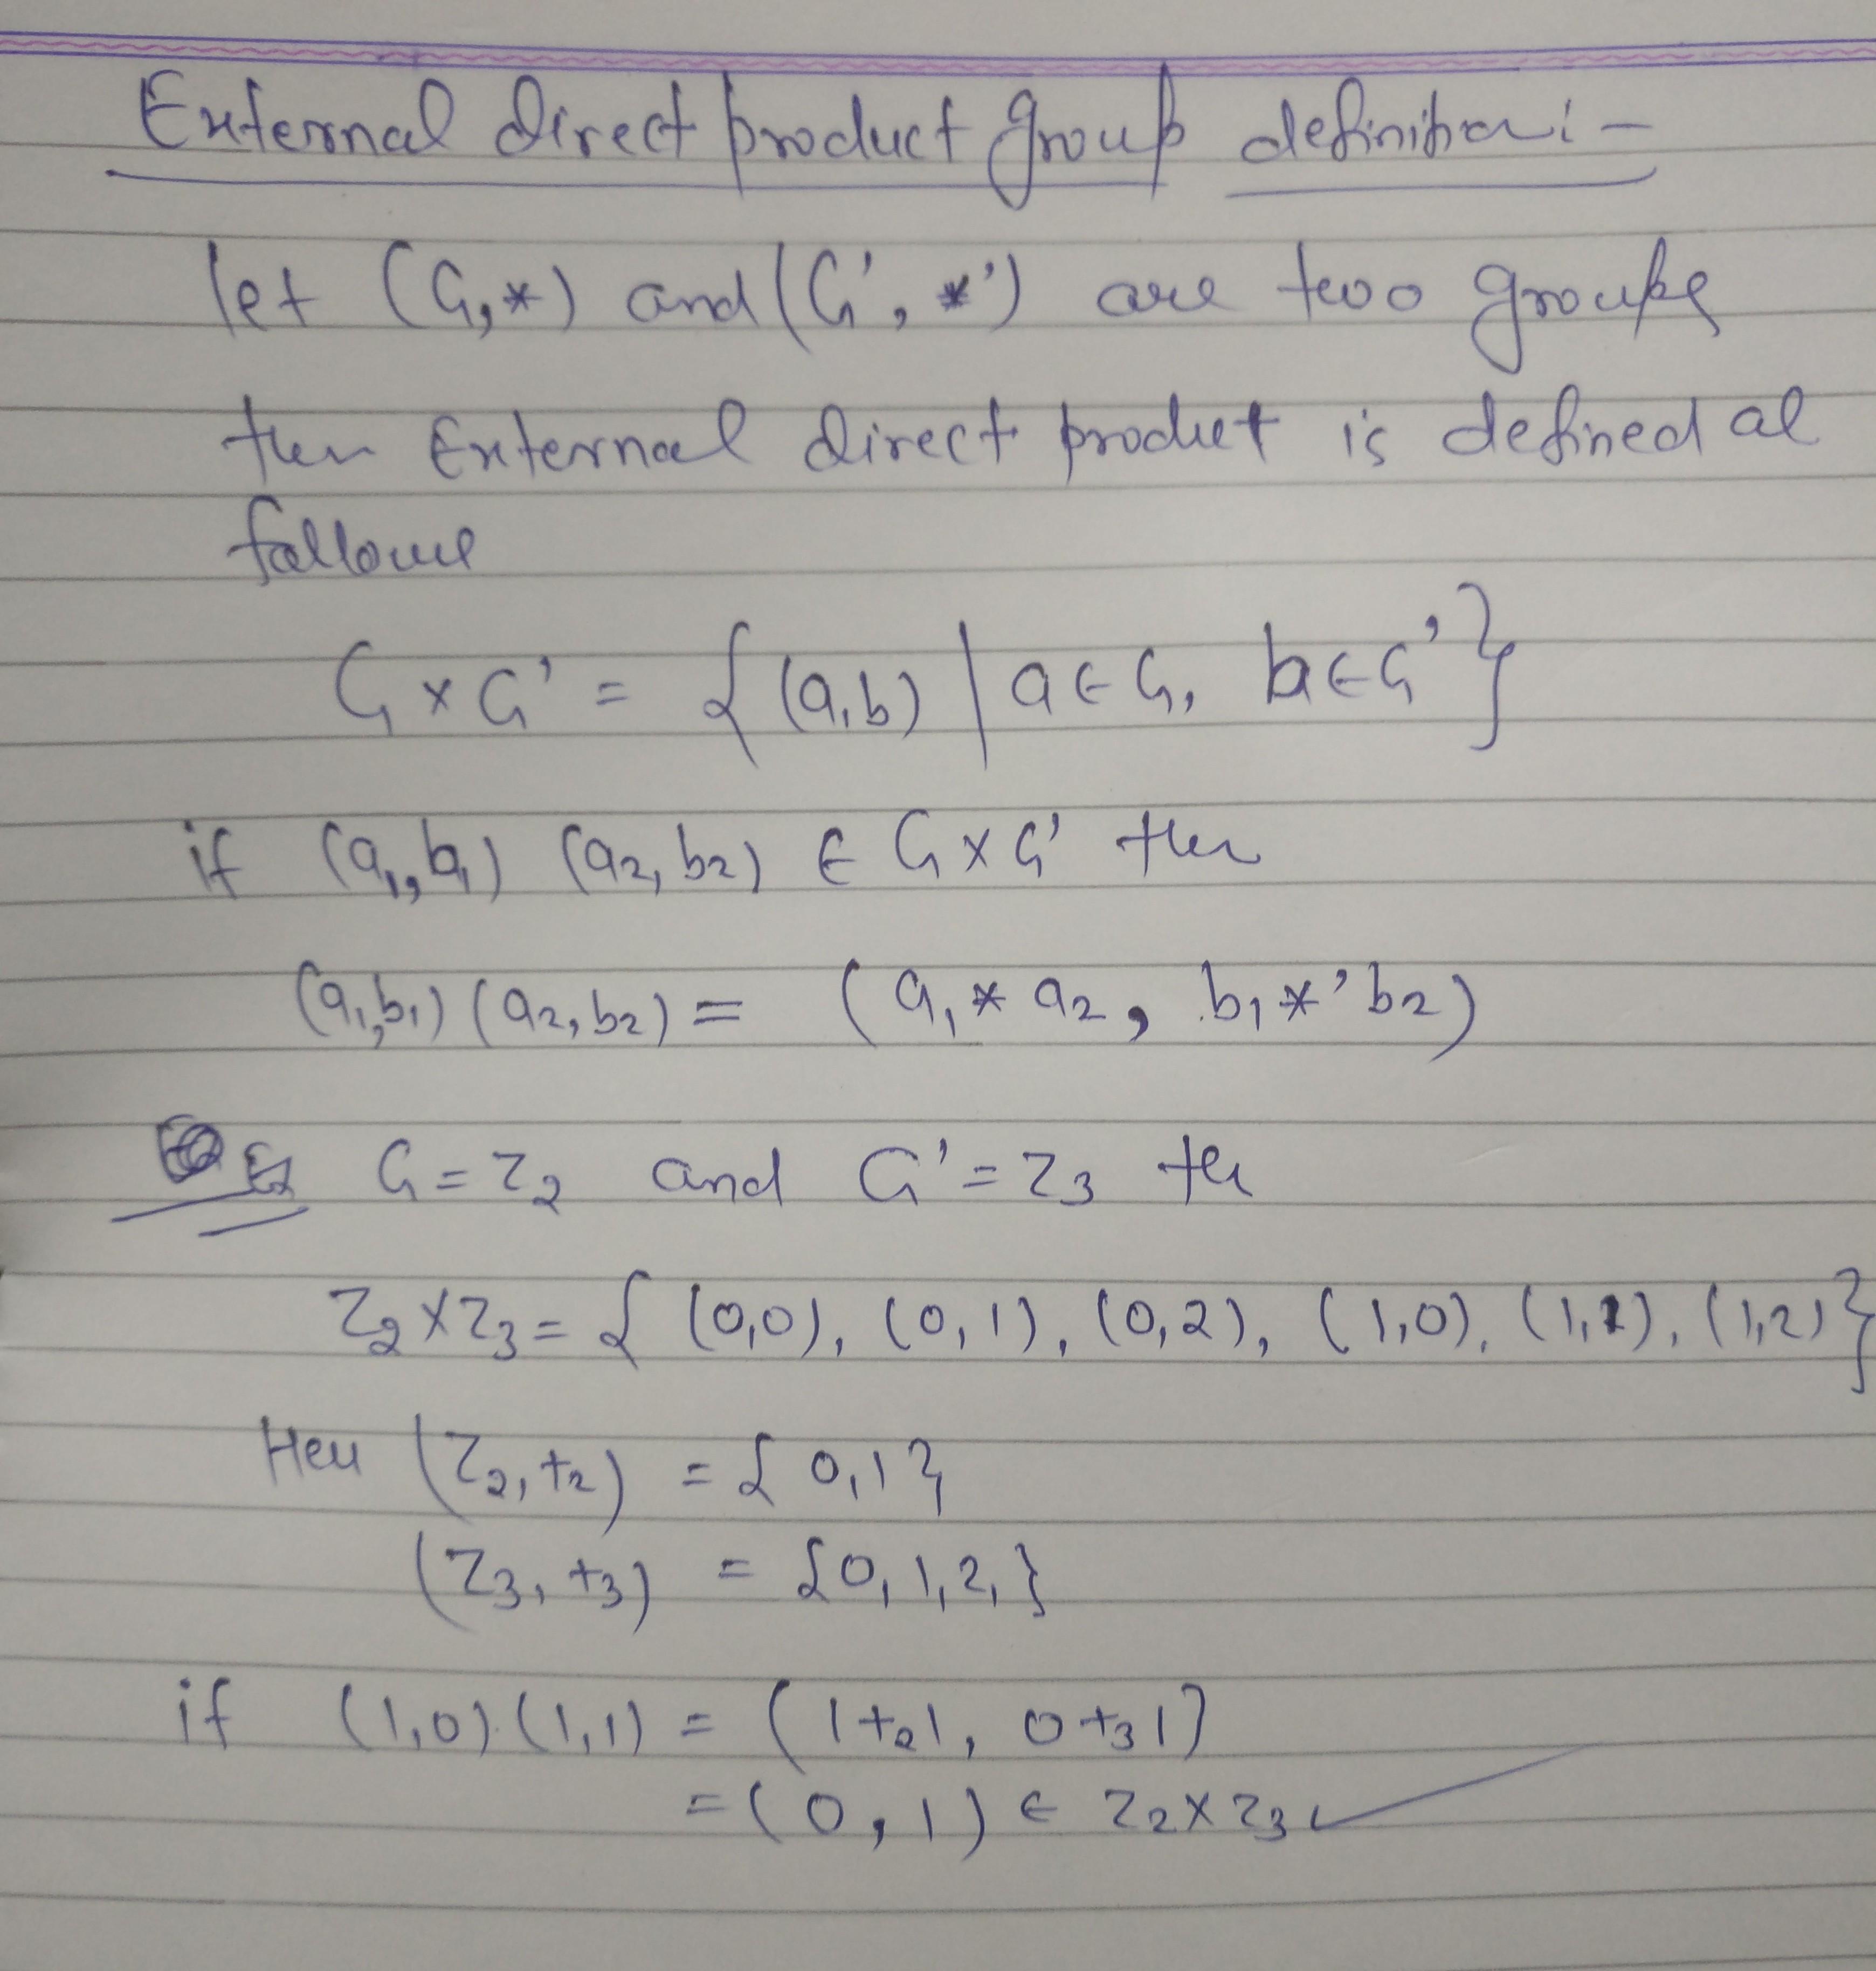 External direct product group definition :-
let (G,*) and (G', *') are two groups
then External direct product is defined as
follows
G × G' = { (a,b) | a ∈ G, b ∈ G' }
if (a₁, b₁) (a₂, b₂) ∈ G × G' then
(a₁,b₁) (a₂, b₂) = ( a₁ * a₂ , b₁ *' b₂)
Ex G = Z₂ and G' = Z₃ the
Z₂ × Z₃ = { (0,0), (0,1), (0,2), (1,0), (1,1), (1,2) }
Here (Z₂, +₂) = { 0,1 }
(Z₃, +₃) = {0, 1, 2, }
if (1,0).(1,1) = ( 1 +₂ 1, 0 +₃ 1)
= (0, 1) ∈ Z₂ × Z₃